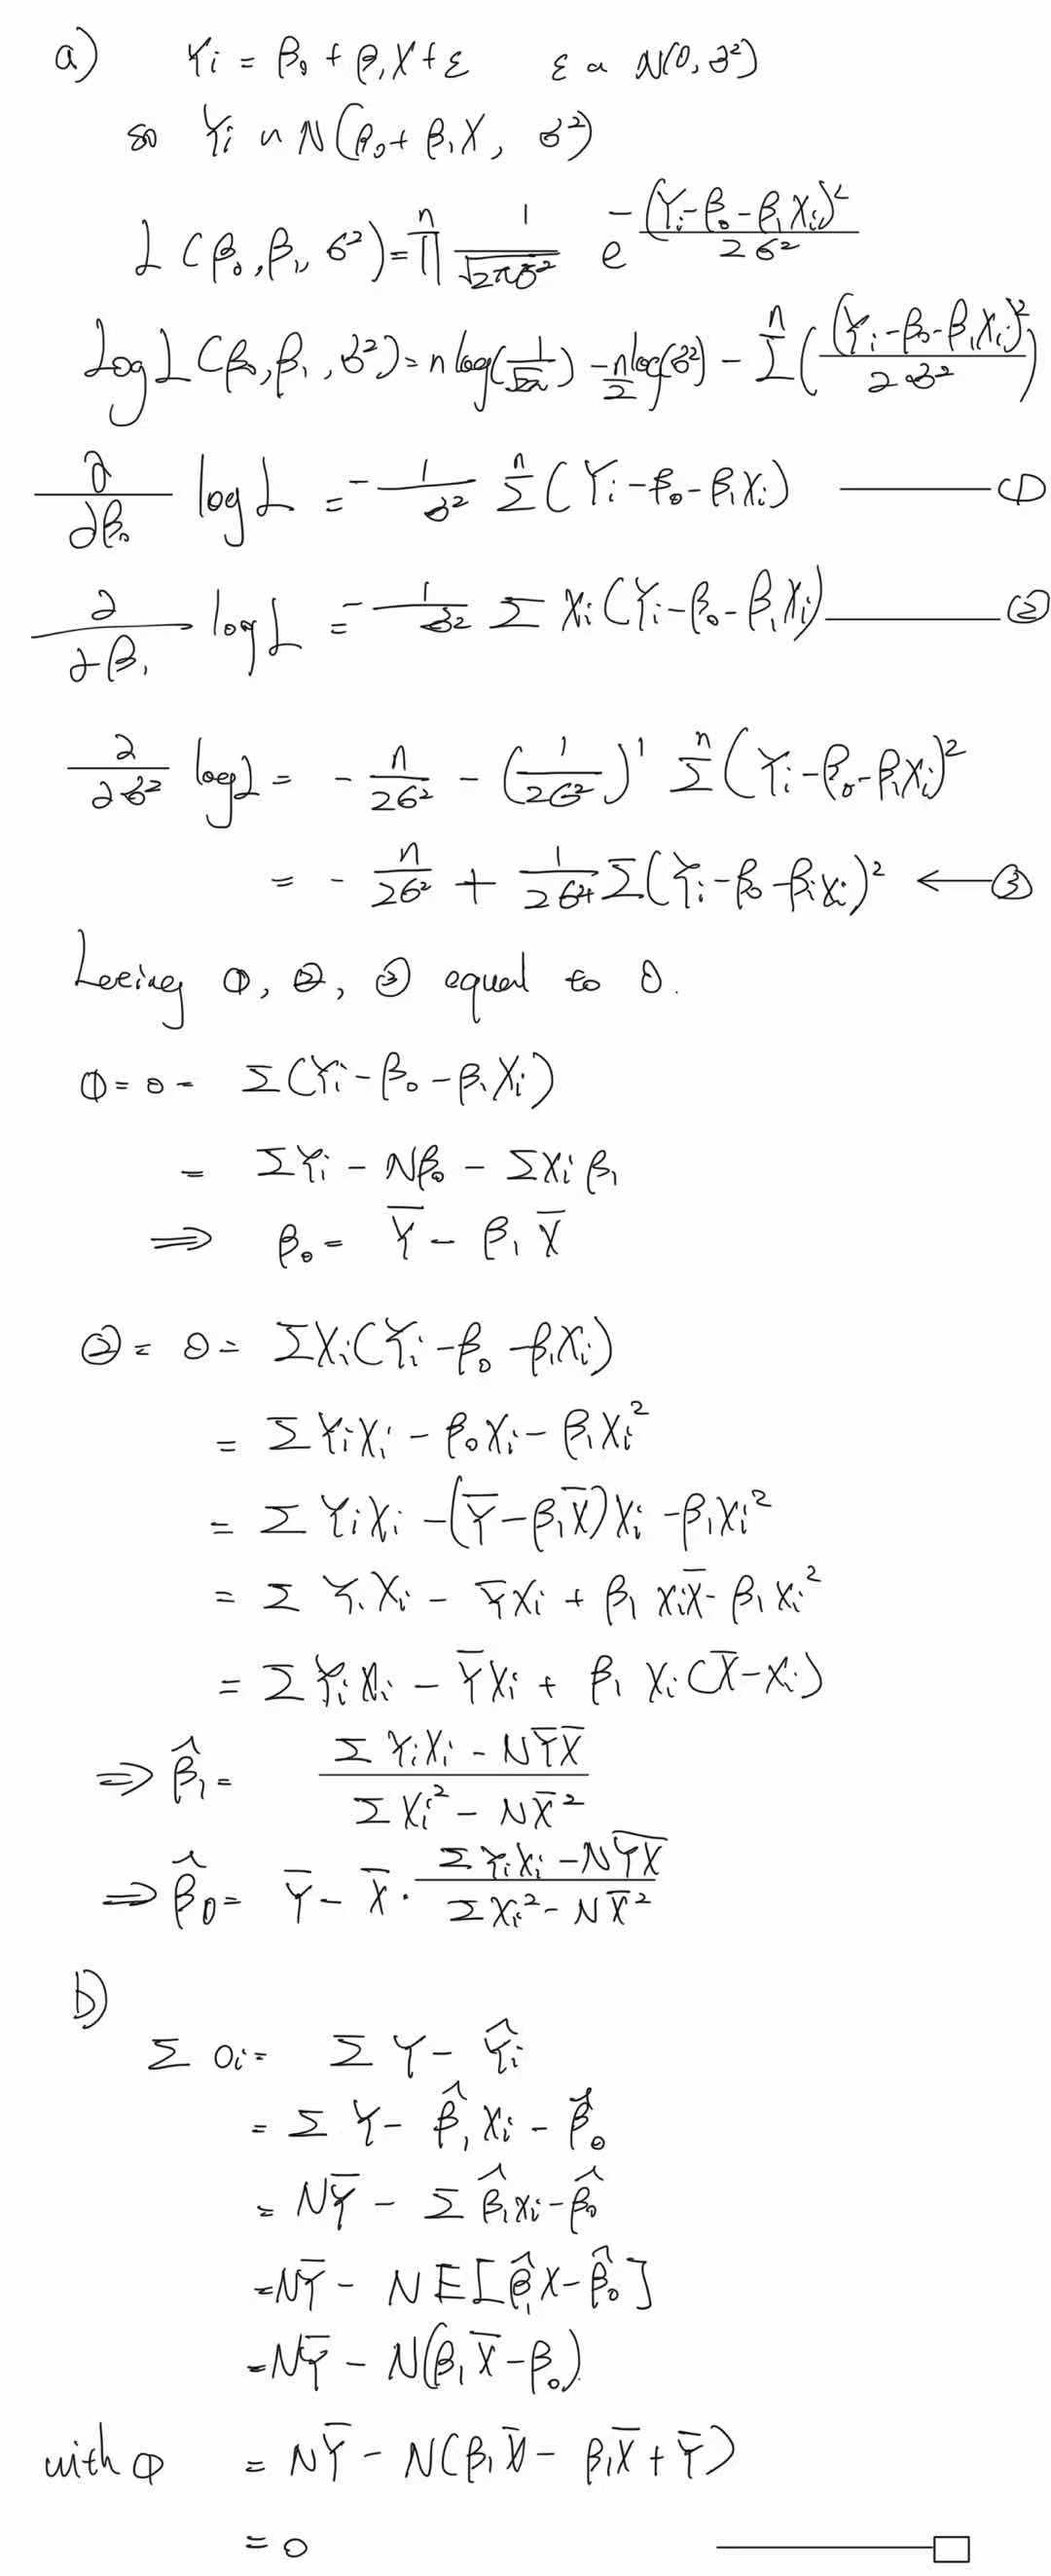 a) Yi = β₀ + β₁X + ε   ε ~ N(0, σ²)
so Yi ~ N(β₀ + β₁X, σ²)
L(β₀, β₁, σ²) = ∏ⁿ 1/√(2πσ²) e^(-(Yi-β₀-β₁Xi)²/2σ²)
Log L(β₀, β₁, σ²) = n log(1/√2π) - n/2 log(σ²) - Σⁿ((Yi-β₀-β₁Xi)²/2σ²)
∂/∂β₀ log L = -1/σ² Σⁿ(Yi-β₀-β₁Xi) —— ①
∂/∂β₁ log L = -1/σ² Σ Xi(Yi-β₀-β₁Xi) —— ②
∂/∂σ² log L = - n/2σ² - (1/2σ²)' Σⁿ(Yi-β₀-β₁Xi)²
= - n/2σ² + 1/2σ⁴ Σ(Yi-β₀-β₁Xi)² ← ③
①, ②, ③ equal to 0.
① = 0 = Σ(Yi-β₀-β₁Xi)
= ΣYi - Nβ₀ - ΣXiβ₁
⇒ β₀ = Y̅ - β₁X̅
② = 0 = ΣXi(Yi-β₀-β₁Xi)
= ΣYiXi - β₀Xi - β₁Xi²
= ΣYiXi - (Y̅-β₁X̅)Xi - β₁Xi²
= ΣYiXi - Y̅Xi + β₁XiX̅ - β₁Xi²
= ΣYiXi - Y̅Xi + β₁Xi(X̅-Xi)
⇒ β̂₁ = (ΣYiXi - NY̅X̅)/(ΣXi² - NX̅²)
⇒ β̂₀ = Y̅ - X̅ · (ΣYiXi - NY̅X̅)/(ΣXi² - NX̅²)
b)
Σ Oi = Σ Y - Ŷi
= Σ Y - β̂₁Xi - β̂₀
= NY̅ - Σ β̂₁Xi - β̂₀
= NY̅ - N E[β̂₁X - β̂₀]
= NY̅ - N(β₁X̅ - β₀)
with ① = NY̅ - N(β₁X̅ - β₁X̅ + Y̅)
= 0 —— □